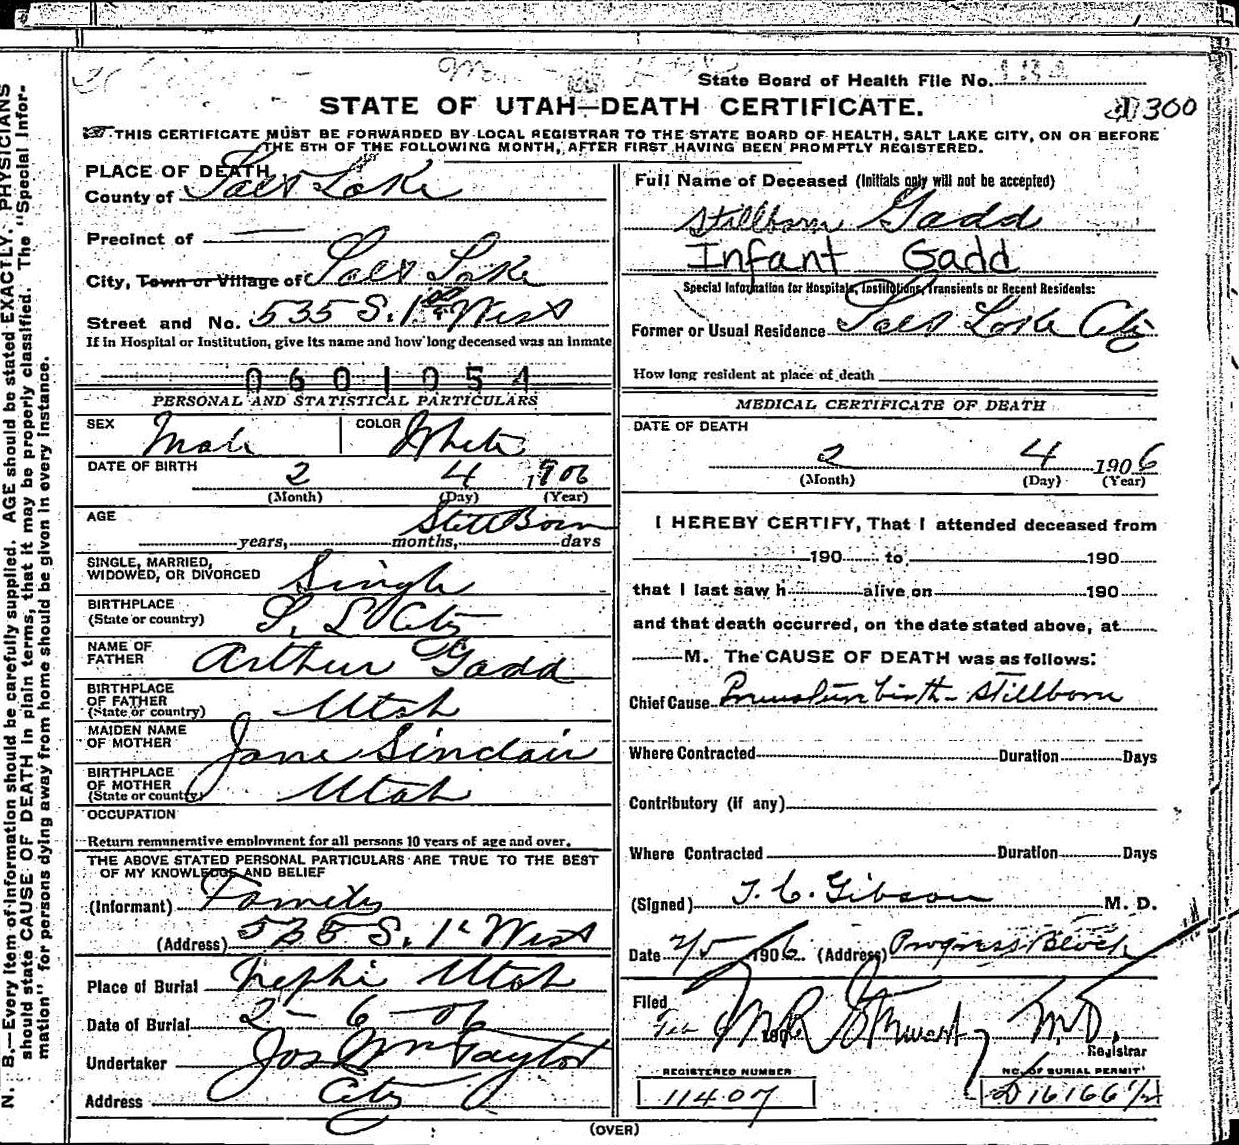 State Board of Health File No.
STATE OF UTAH—DEATH CERTIFICATE.
300
THIS CERTIFICATE MUST BE FORWARDED BY LOCAL REGISTRAR TO THE STATE BOARD OF HEALTH, SALT LAKE CITY, ON OR BEFORE
THE 5TH OF THE FOLLOWING MONTH, AFTER FIRST HAVING BEEN PROMPTLY REGISTERED.
PLACE OF DEATH
County of Salt Lake
Precinct of —
City, Town or Village of Salt Lake
Street and No. 535 S. 1st West
If in Hospital or Institution, give its name and how long deceased was an inmate
0601054
PERSONAL AND STATISTICAL PARTICULARS
SEX Male COLOR White
DATE OF BIRTH 2 4 1906
(Month) (Day) (Year)
AGE Still Born
years, months, days
SINGLE, MARRIED,
WIDOWED, OR DIVORCED Single
BIRTHPLACE
(State or country) S. L. City
NAME OF
FATHER Arthur Gadd
BIRTHPLACE
OF FATHER
(State or country) Utah
MAIDEN NAME
OF MOTHER Jane Sinclair
BIRTHPLACE
OF MOTHER
(State or country) Utah
OCCUPATION
Return remunerative employment for all persons 10 years of age and over.
THE ABOVE STATED PERSONAL PARTICULARS ARE TRUE TO THE BEST
OF MY KNOWLEDGE AND BELIEF
(Informant) Family
(Address) 535 S. 1st West
Place of Burial Nephi Utah
Date of Burial 2-6-06
Undertaker Jos Wm Taylor
Address City
Full Name of Deceased (Initials only will not be accepted)
Stillborn Gadd
Infant Gadd
Special Information for Hospitals, Institutions, Transients or Recent Residents:
Former or Usual Residence Salt Lake City
How long resident at place of death
MEDICAL CERTIFICATE OF DEATH
DATE OF DEATH
2 4 1906
(Month) (Day) (Year)
I HEREBY CERTIFY, That I attended deceased from
190 to 190
that I last saw h alive on 190
and that death occurred, on the date stated above, at
M. The CAUSE OF DEATH was as follows:
Chief Cause Premature birth - Stillborn
Where Contracted Duration Days
Contributory (if any)
Where Contracted Duration Days
(Signed) T. C. Gibson M. D.
Date 2/5 1906. (Address) Progress Block
Filed
Feb 1906 M R Stewart, M.D.
Registrar
REGISTERED NUMBER
11407
NO. OF BURIAL PERMIT
D16166 1/2
(OVER)
N. B.—Every item of information should be carefully supplied. AGE should be stated EXACTLY. PHYSICIANS
should state CAUSE OF DEATH in plain terms, that it may be properly classified. The "Special Infor-
mation" for persons dying away from home should be given in every instance.